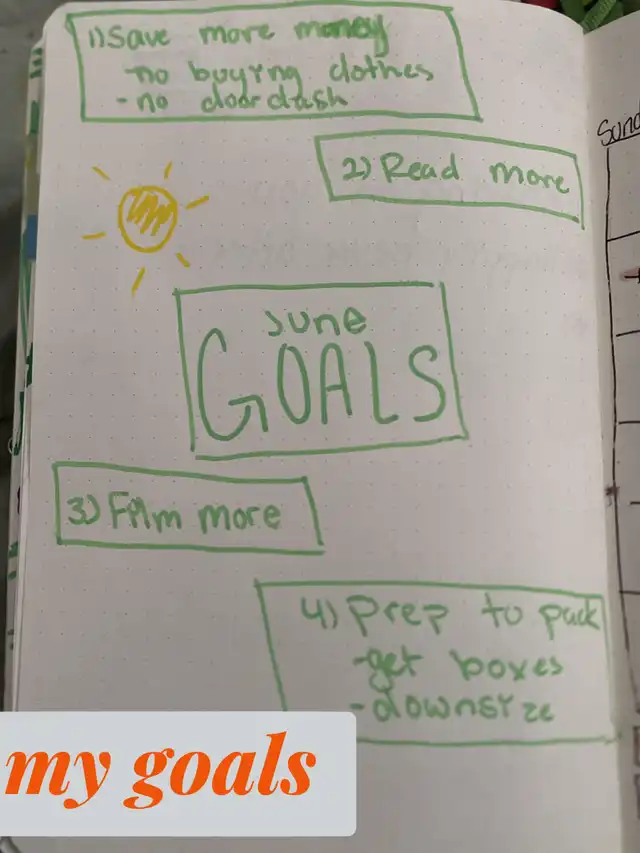 1) Save more money
-no buying clothes
-no doordash
2) Read more
June
GOALS
3) Film more
4) Prep to pack
-get boxes
-downsize
my goals